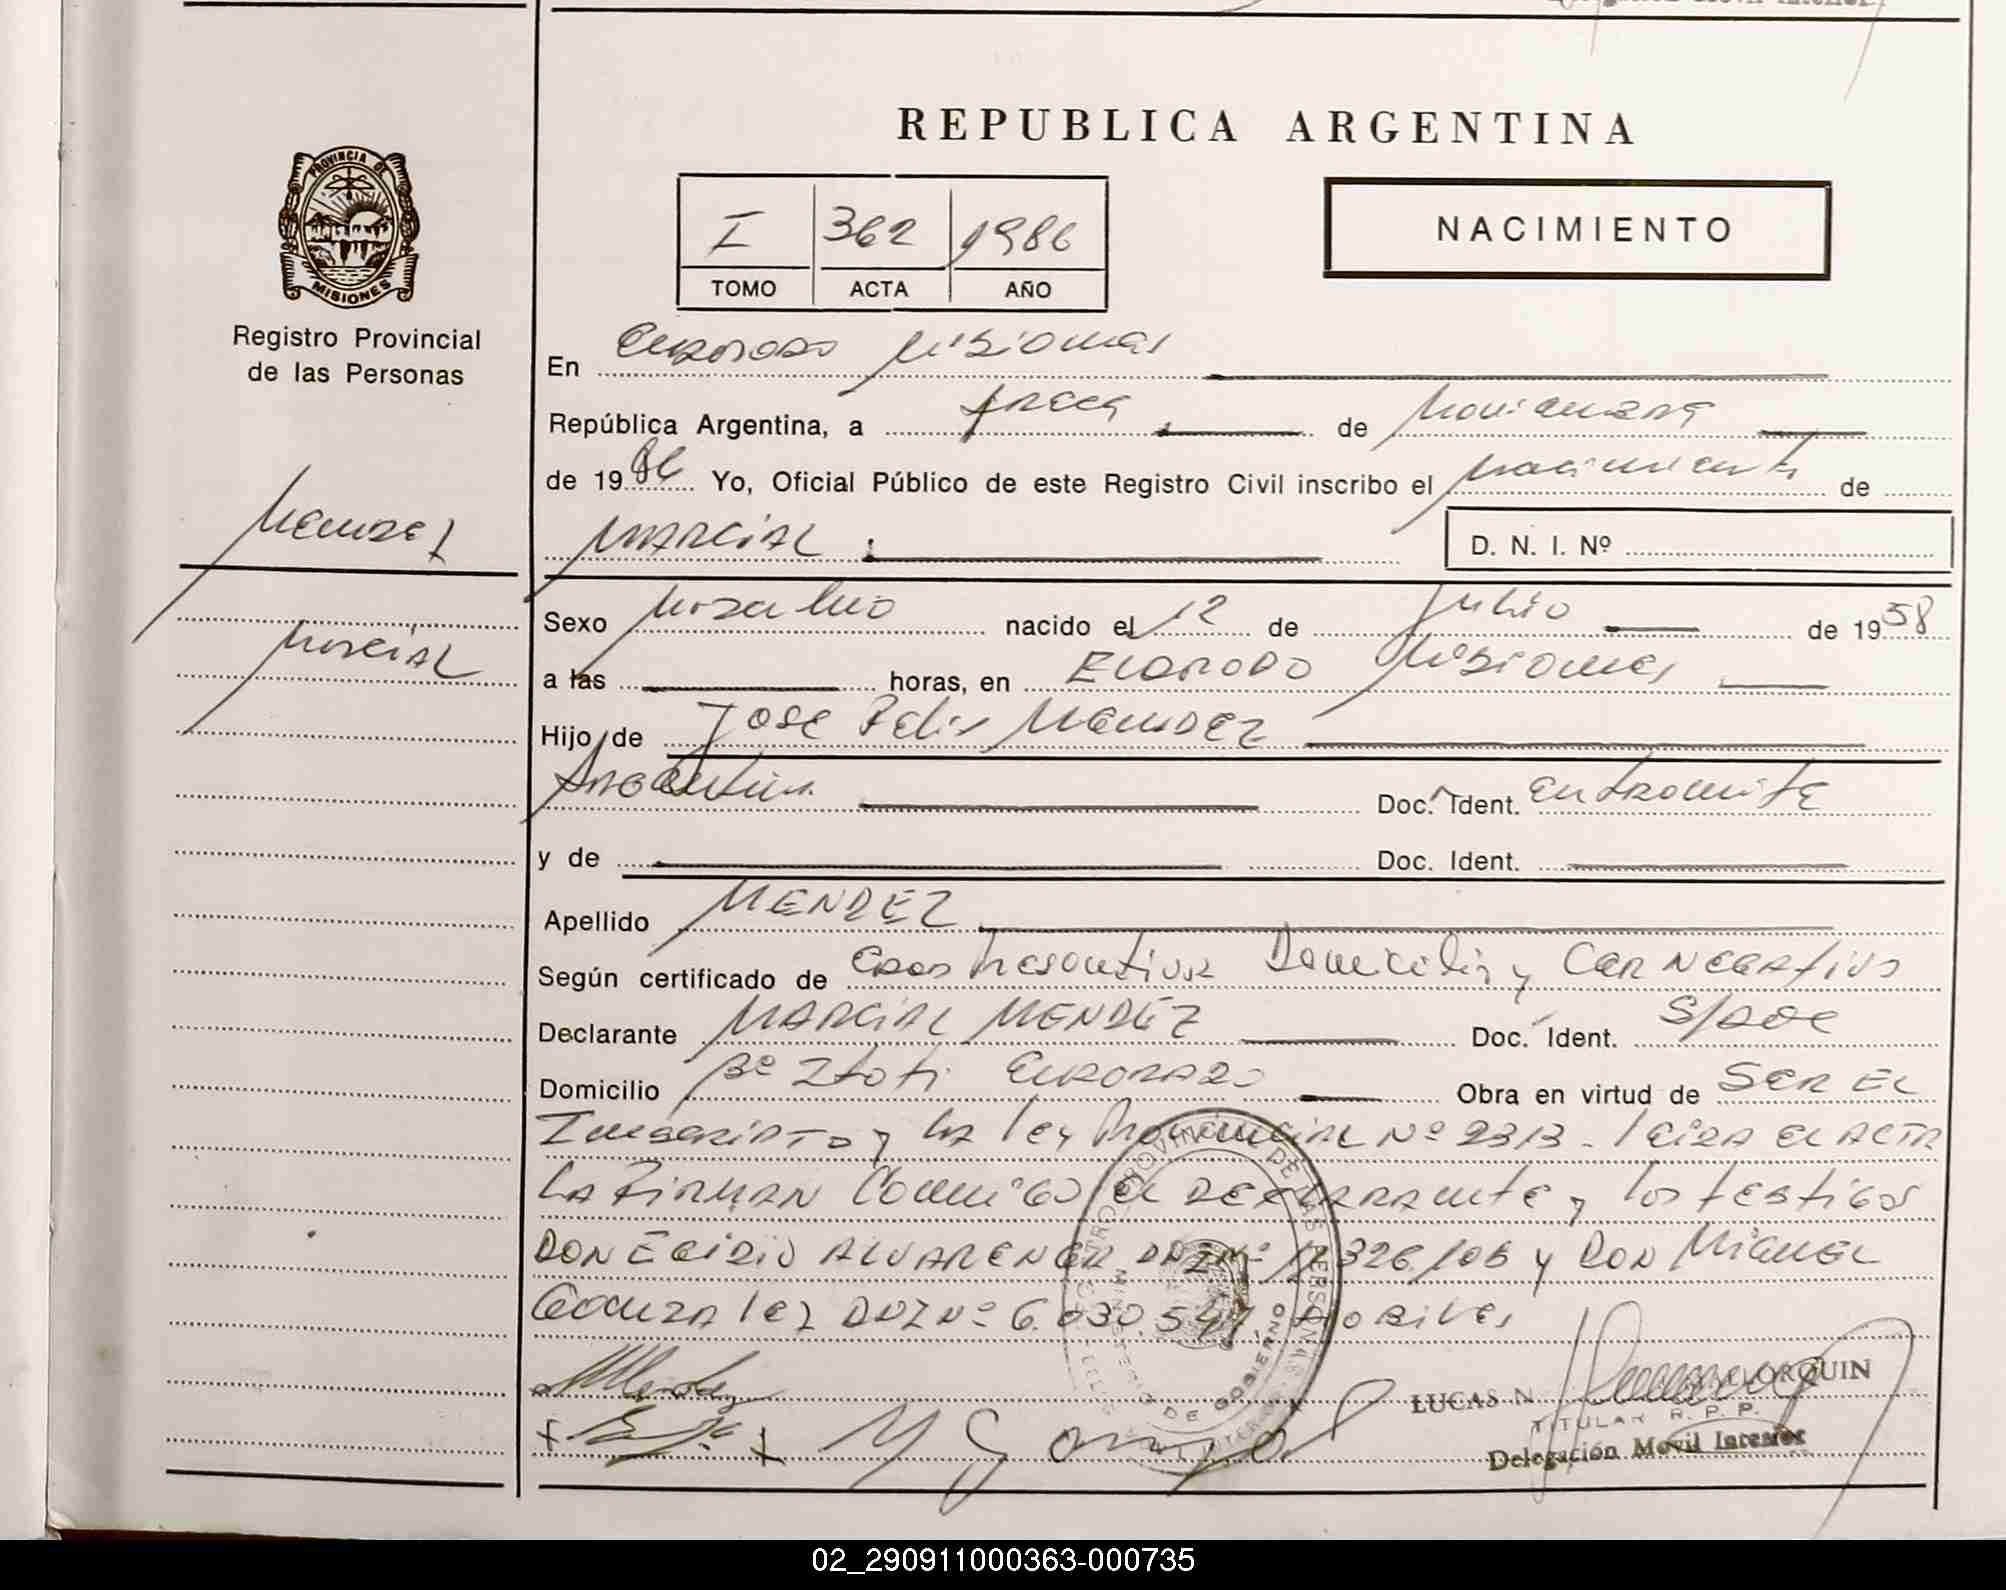 REPUBLICA ARGENTINA
PROVINCIA DE
MISIONES
Registro Provincial
de las Personas
I 362 1986
TOMO ACTA AÑO
NACIMIENTO
En Eldorado Misiones
República Argentina, a trece de Noviembre
de 1986 Yo, Oficial Público de este Registro Civil inscribo el nacimiento de
MARCIAL D. N. I. Nº
Mendez
Marcial
Sexo Masculino nacido el 12 de Julio de 1958
a las horas, en Eldorado Misiones
Hijo de Jose Felix Mendez
Argentina Doc. Ident. en tramite
y de Doc. Ident.
Apellido MENDEZ
Según certificado de Edad Presuntiva Domicilio y Car Negativo
Declarante MARCIAL MENDEZ Doc. Ident. S/Doc
Domicilio Bº Eldorado Obra en virtud de SER EL
Inscripto y la ley Provincial Nº 2313 - leida el ACTA
La Firman Conmigo el Declarante y los testigos
DON EGIDIO ALVARENGA DNI Nº 326.106 y DON MIGUEL
Gonzalez DNI Nº 6.030.547
LUCAS N. LORQUIN
TITULAR R. P. P.
Delegación Movil Interior
MINISTERIO DE GOBIERNO
02_290911000363-000735